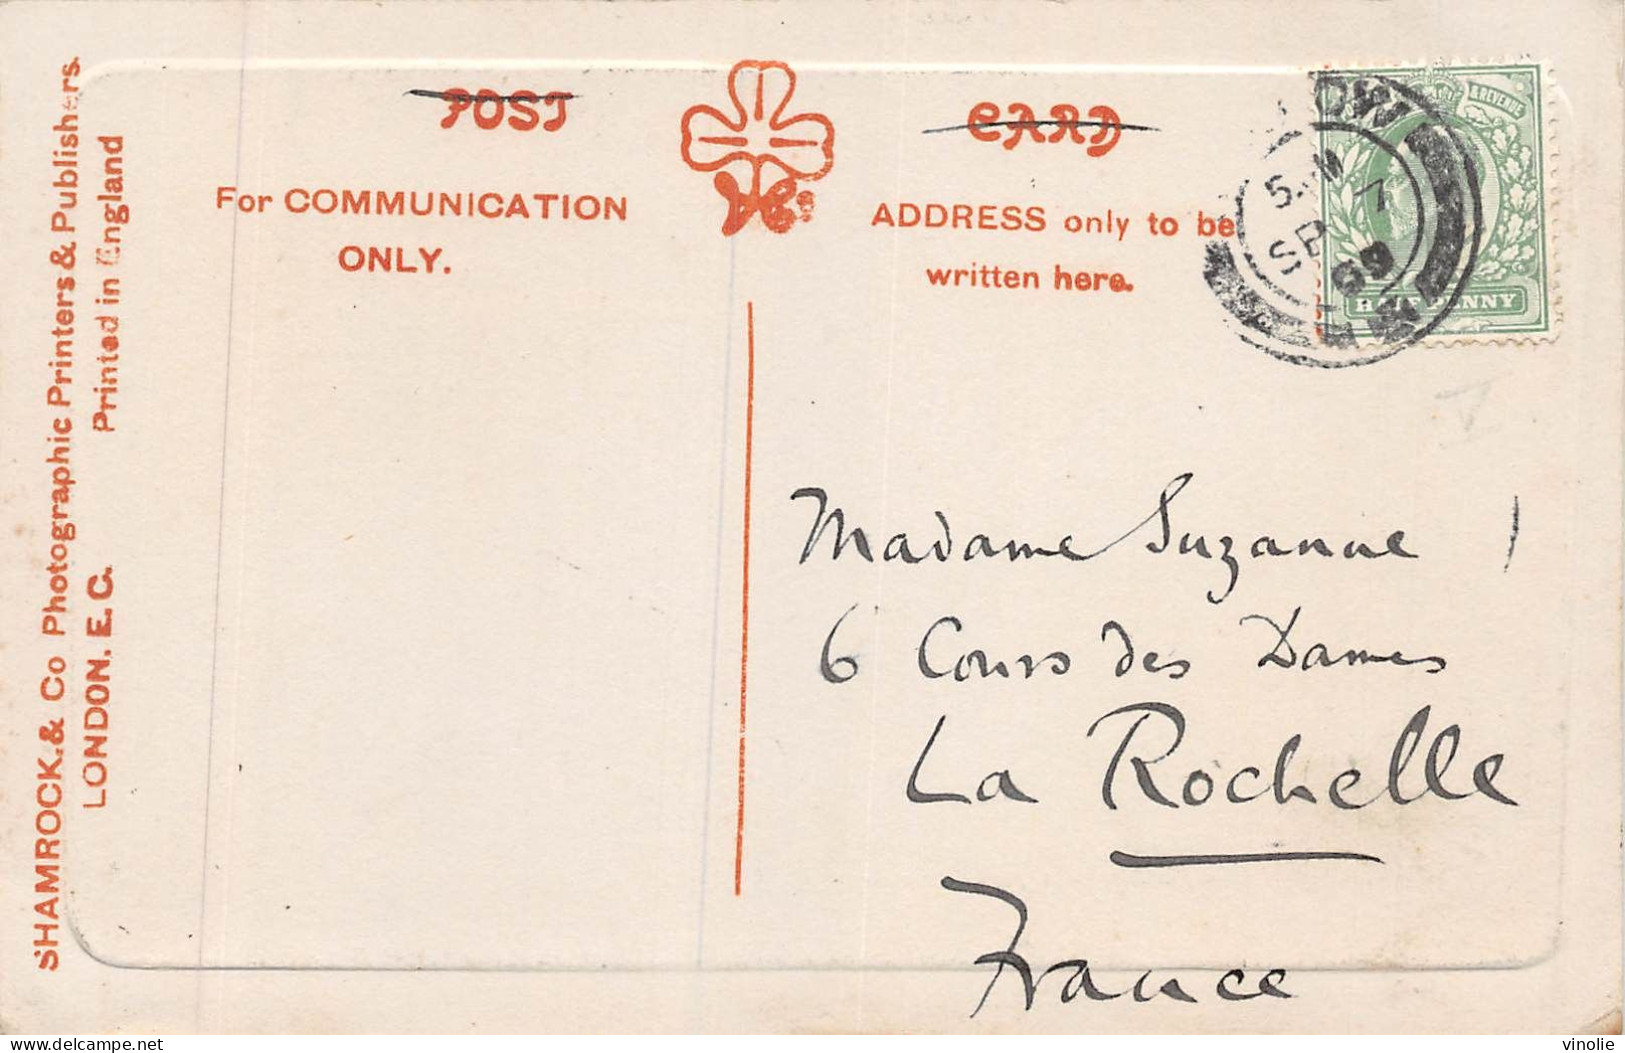 SHAMROCK.& Co Photographic Printers & Publishers.
LONDON. E. C. Printed in England
POST CARD
For COMMUNICATION
ONLY.
ADDRESS only to be
written here.
& REVENUE
HALFPENNY
SP 7
09
Madame Suzanne
6 Cours des Dames
La Rochelle
France
www.delcampe.net
vinolie